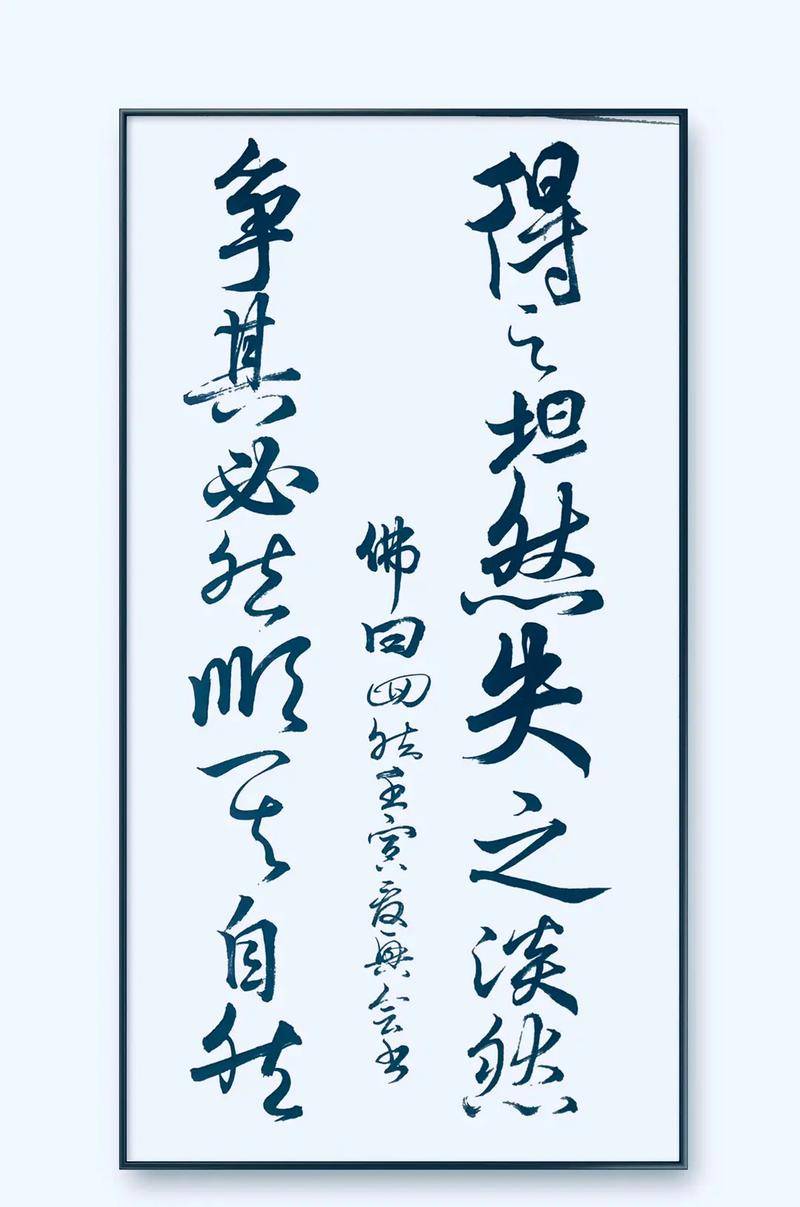 得之坦然失之淡然
争其必然顺其自然
佛曰四然壬寅夏興会书